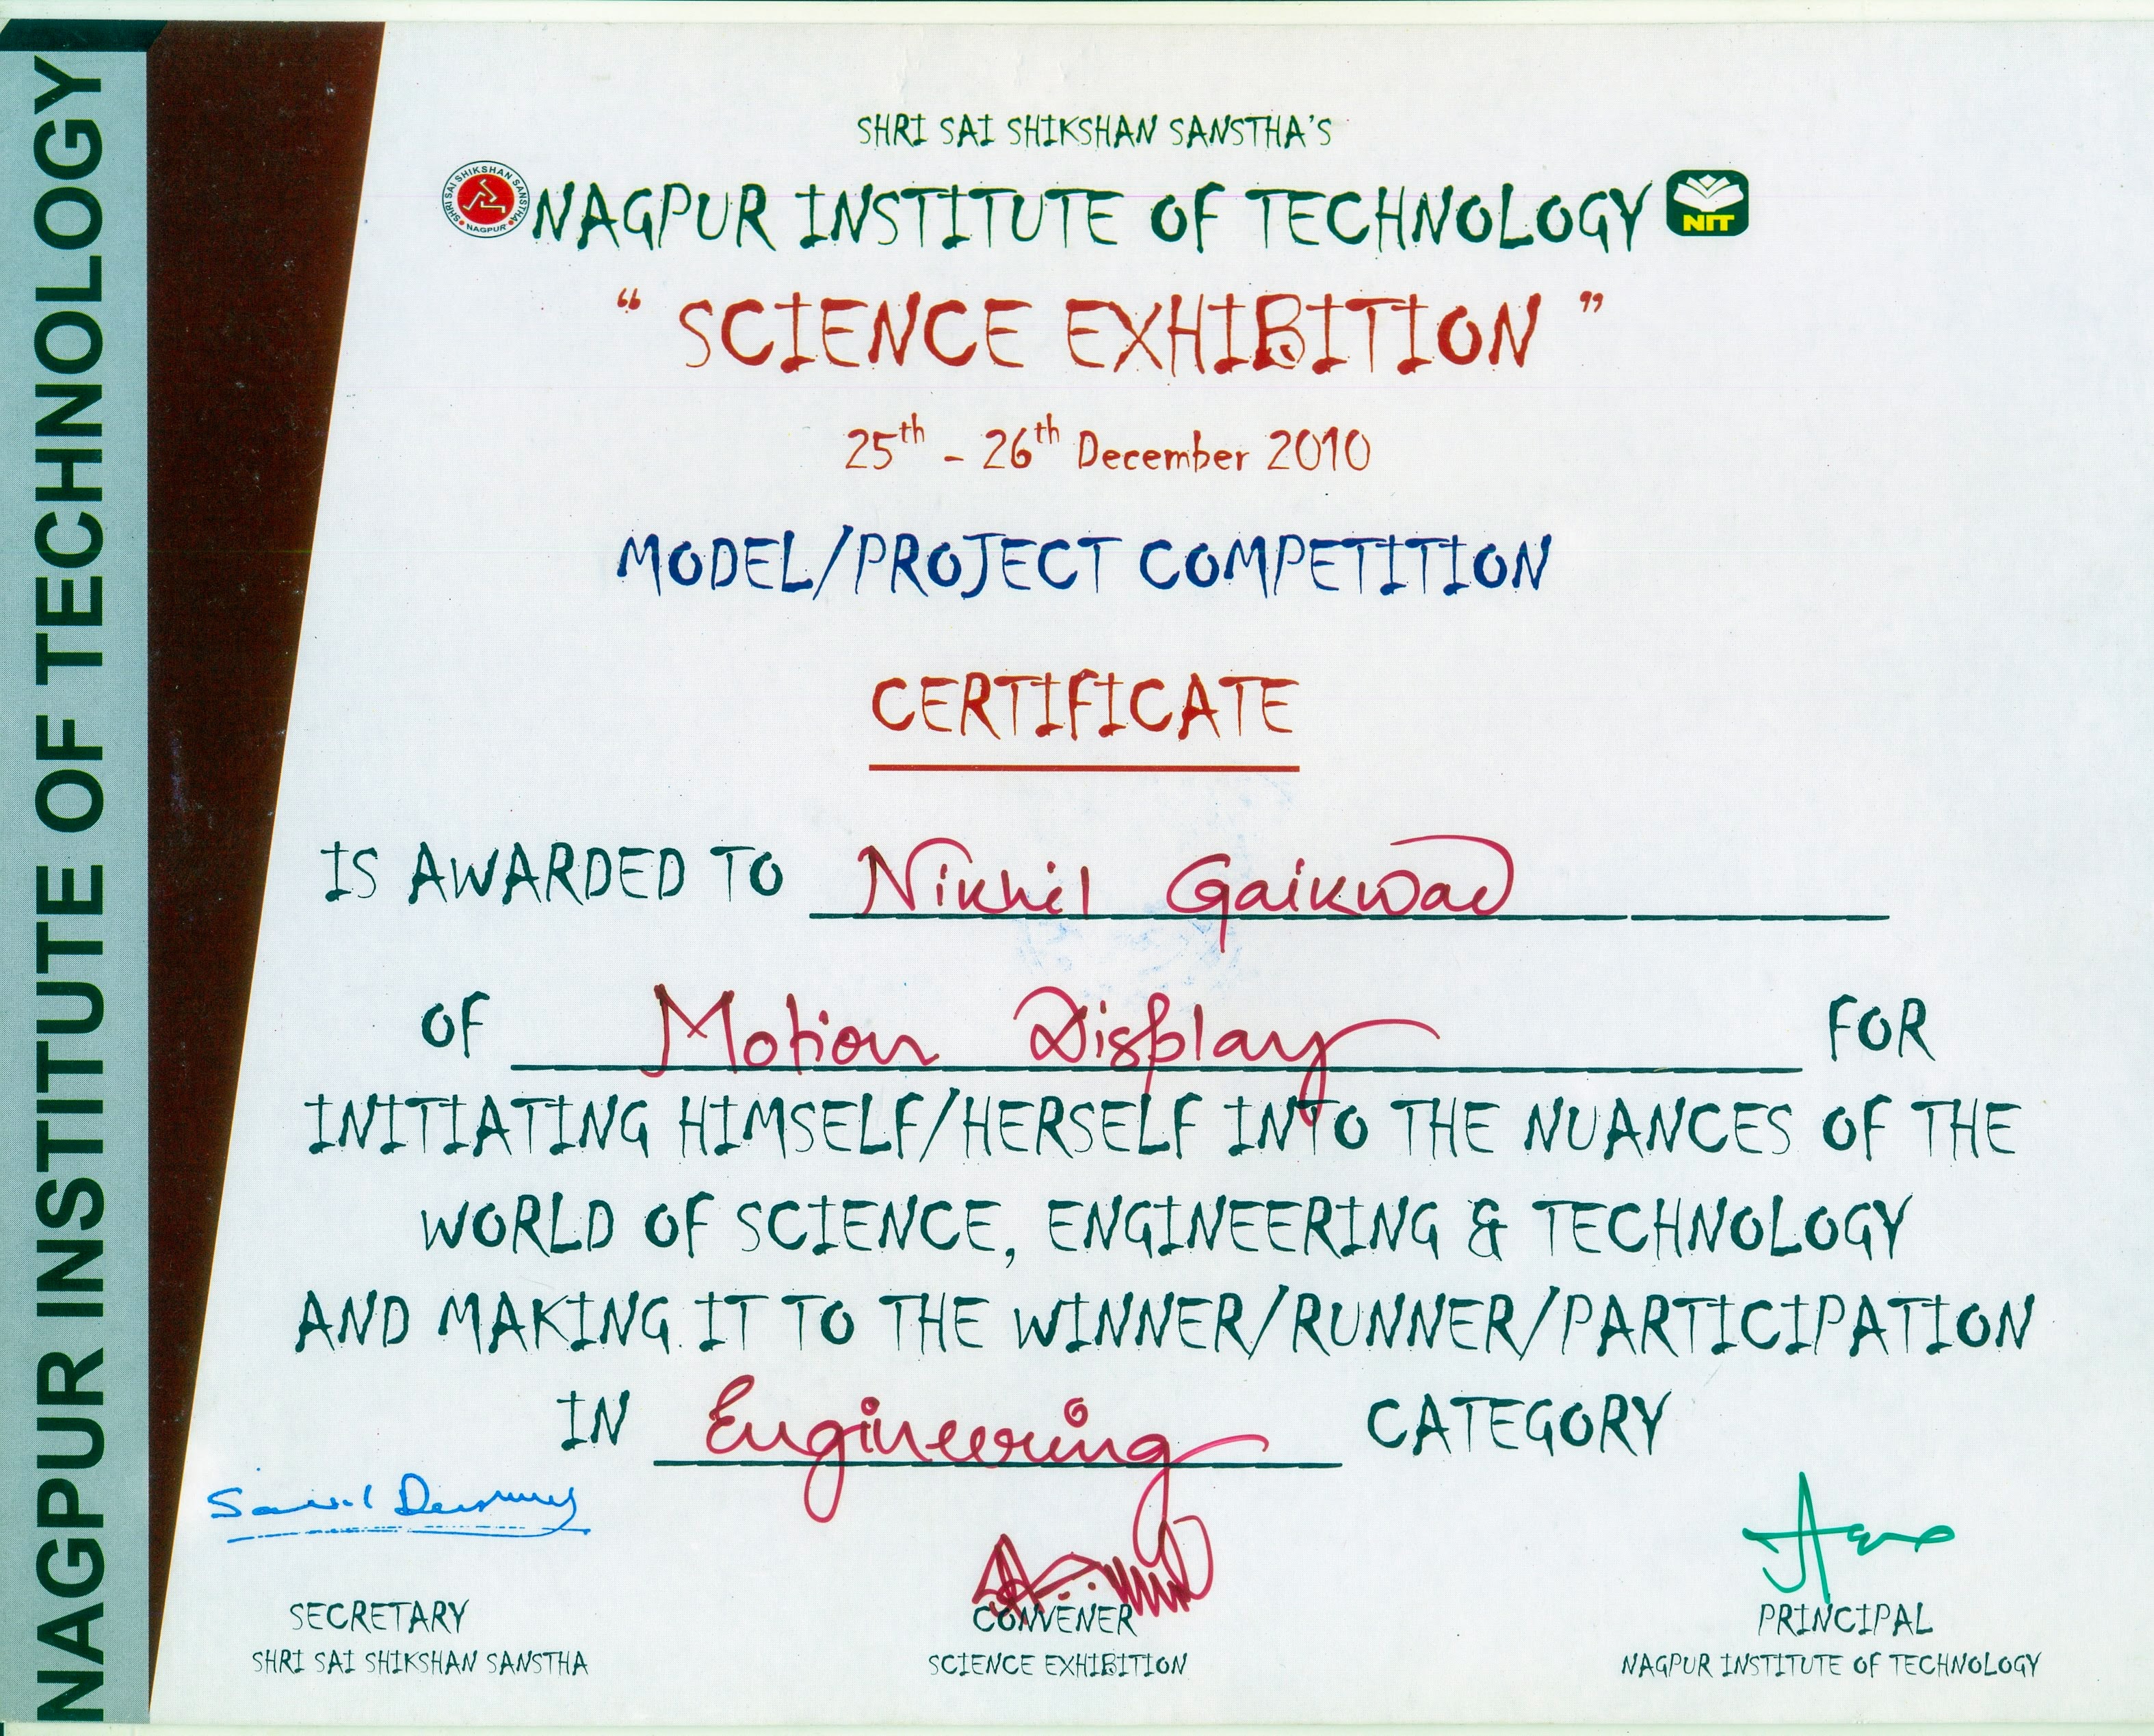 NAGPUR INSTITUTE OF TECHNOLOGY
SHRI SAI SHIKSHAN SANSTHA'S
SHRI SAI SHIKSHAN SANSTHA
NAGPUR
NAGPUR INSTITUTE OF TECHNOLOGY
NIT
" SCIENCE EXHIBITION "
25th - 26th December 2010
MODEL/PROJECT COMPETITION
CERTIFICATE
IS AWARDED TO Nikhil Gaikwad
OF Motion Display FOR
INITIATING HIMSELF/HERSELF INTO THE NUANCES OF THE
WORLD OF SCIENCE, ENGINEERING & TECHNOLOGY
AND MAKING IT TO THE WINNER/RUNNER/PARTICIPATION
IN Engineering CATEGORY
SECRETARY
SHRI SAI SHIKSHAN SANSTHA
CONVENER
SCIENCE EXHIBITION
PRINCIPAL
NAGPUR INSTITUTE OF TECHNOLOGY